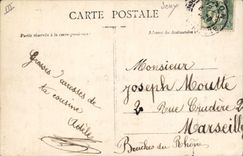 CARTE POSTALE
Partie réservée à la correspondance
Adresse du destinataire
Grosses caresses de
ta cousine
Adèle
Monsieur
Joseph Moutte
2 Rue Crudère 2
Marseille
Bouches du Rhône